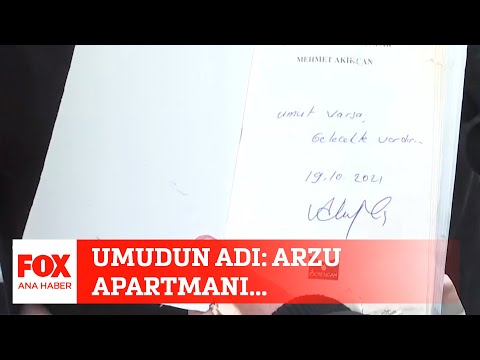 MEHMET AKIKCAN
umut varsa,
Gelecekte vardır..
19.10.2021
FOX
ANA HABER
UMUDUN ADI: ARZU
APARTMANI...